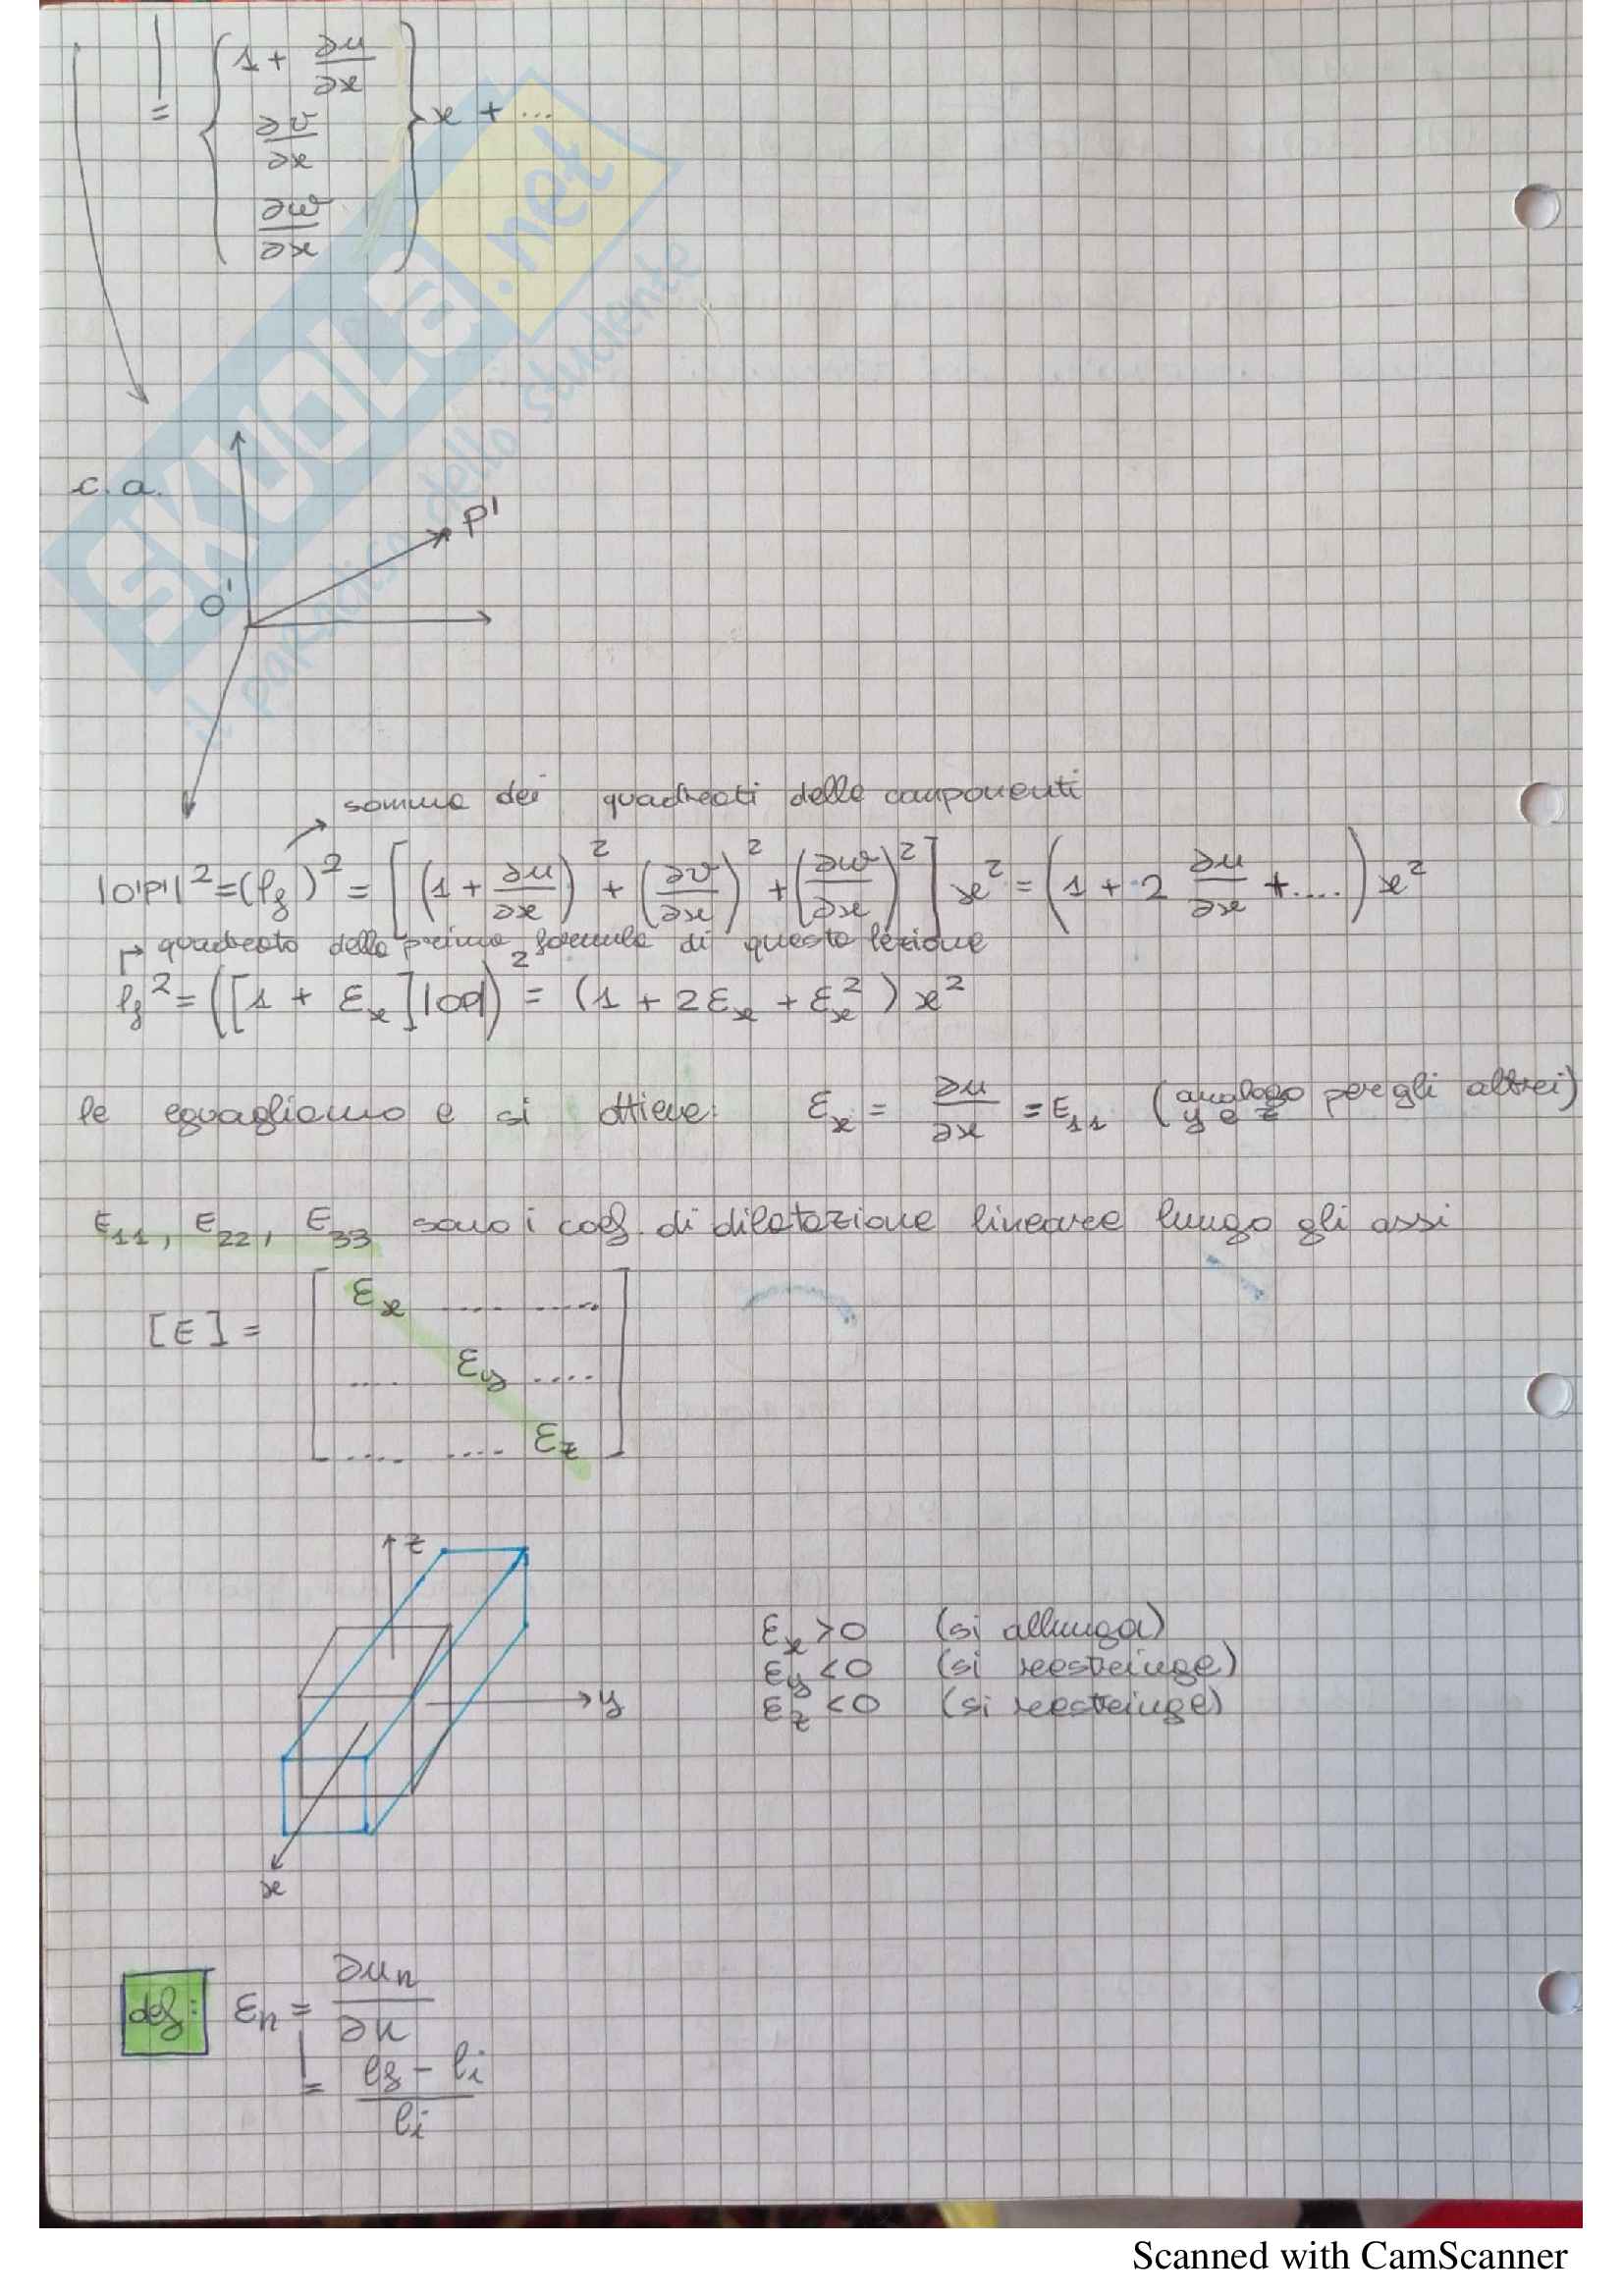 = { 1 + ∂u/∂x
∂v/∂x
∂w/∂x } x + ...
SKUOLA.net
il paradiso dello studente
c.a.
P'
O'
somma dei quadrati delle componenti
|O'P'|² = (lf)² = [(1 + ∂u/∂x)² + (∂v/∂x)² + (∂w/∂x)²] x² = (1 + 2 ∂u/∂x + ....) x²
quadrato della prima formula di questa lezione
lf² = ([1 + εx] |OP|)² = (1 + 2εx + εx²) x²
le eguagliamo e si ottiene: εx = ∂u/∂x = E11 (analogo per gli altri)
y e z
E11, E22, E33 sono i coef. di dilatazione lineare lungo gli assi
[E] = [ εx .... ....
.... εy ....
.... .... εz ]
z
εx > 0 (si allunga)
εy < 0 (si restringe)
y
εz < 0 (si restringe)
x
def: εn = ∂un/∂n
= lf - li / li
Scanned with CamScanner